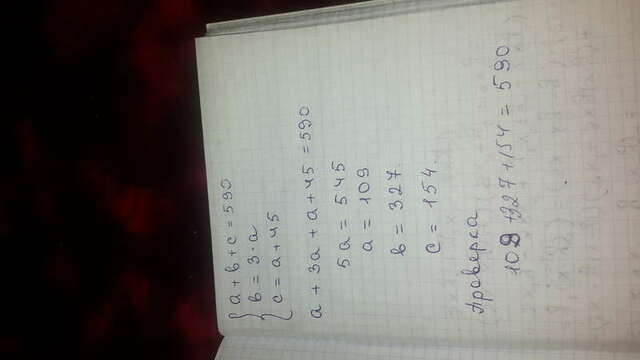 a + b + c = 590
b = 3 · a
c = a + 45
a + 3a + a + 45 = 590
5a = 545
a = 109
b = 327.
c = 154.
Проверка
109 + 327 + 154 = 590